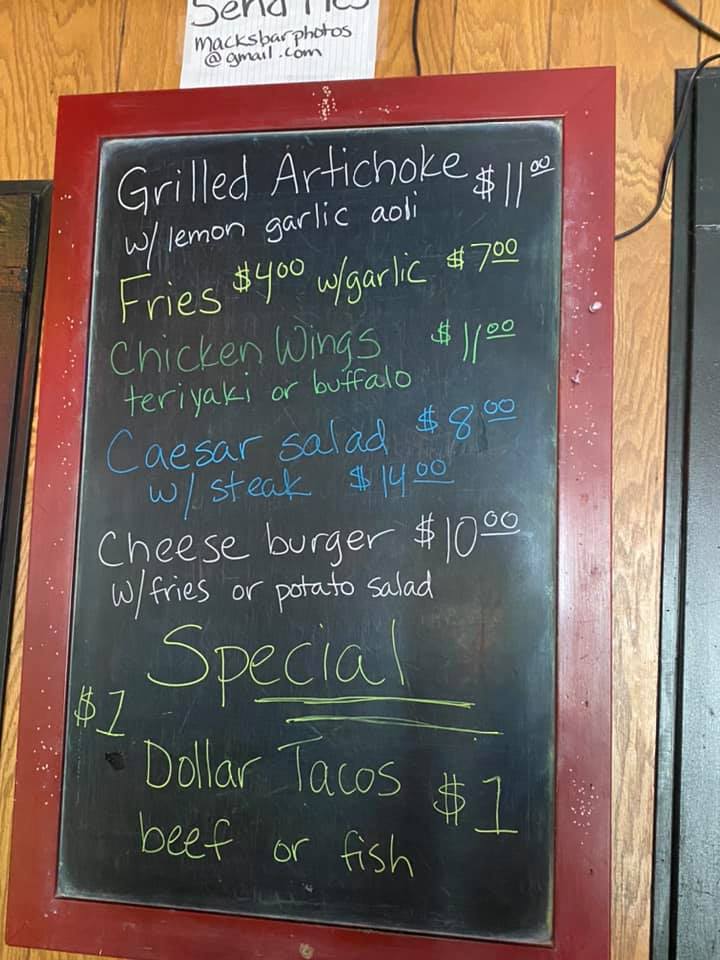 macksbarphotos
@gmail.com
Grilled Artichoke $11.00
w/ lemon garlic aoli
Fries $4.00 w/garlic $7.00
Chicken Wings $11.00
teriyaki or buffalo
Caesar salad $8.00
w/ steak $14.00
Cheese burger $10.00
w/fries or potato salad
Special
$1
Dollar Tacos $1
beef or fish